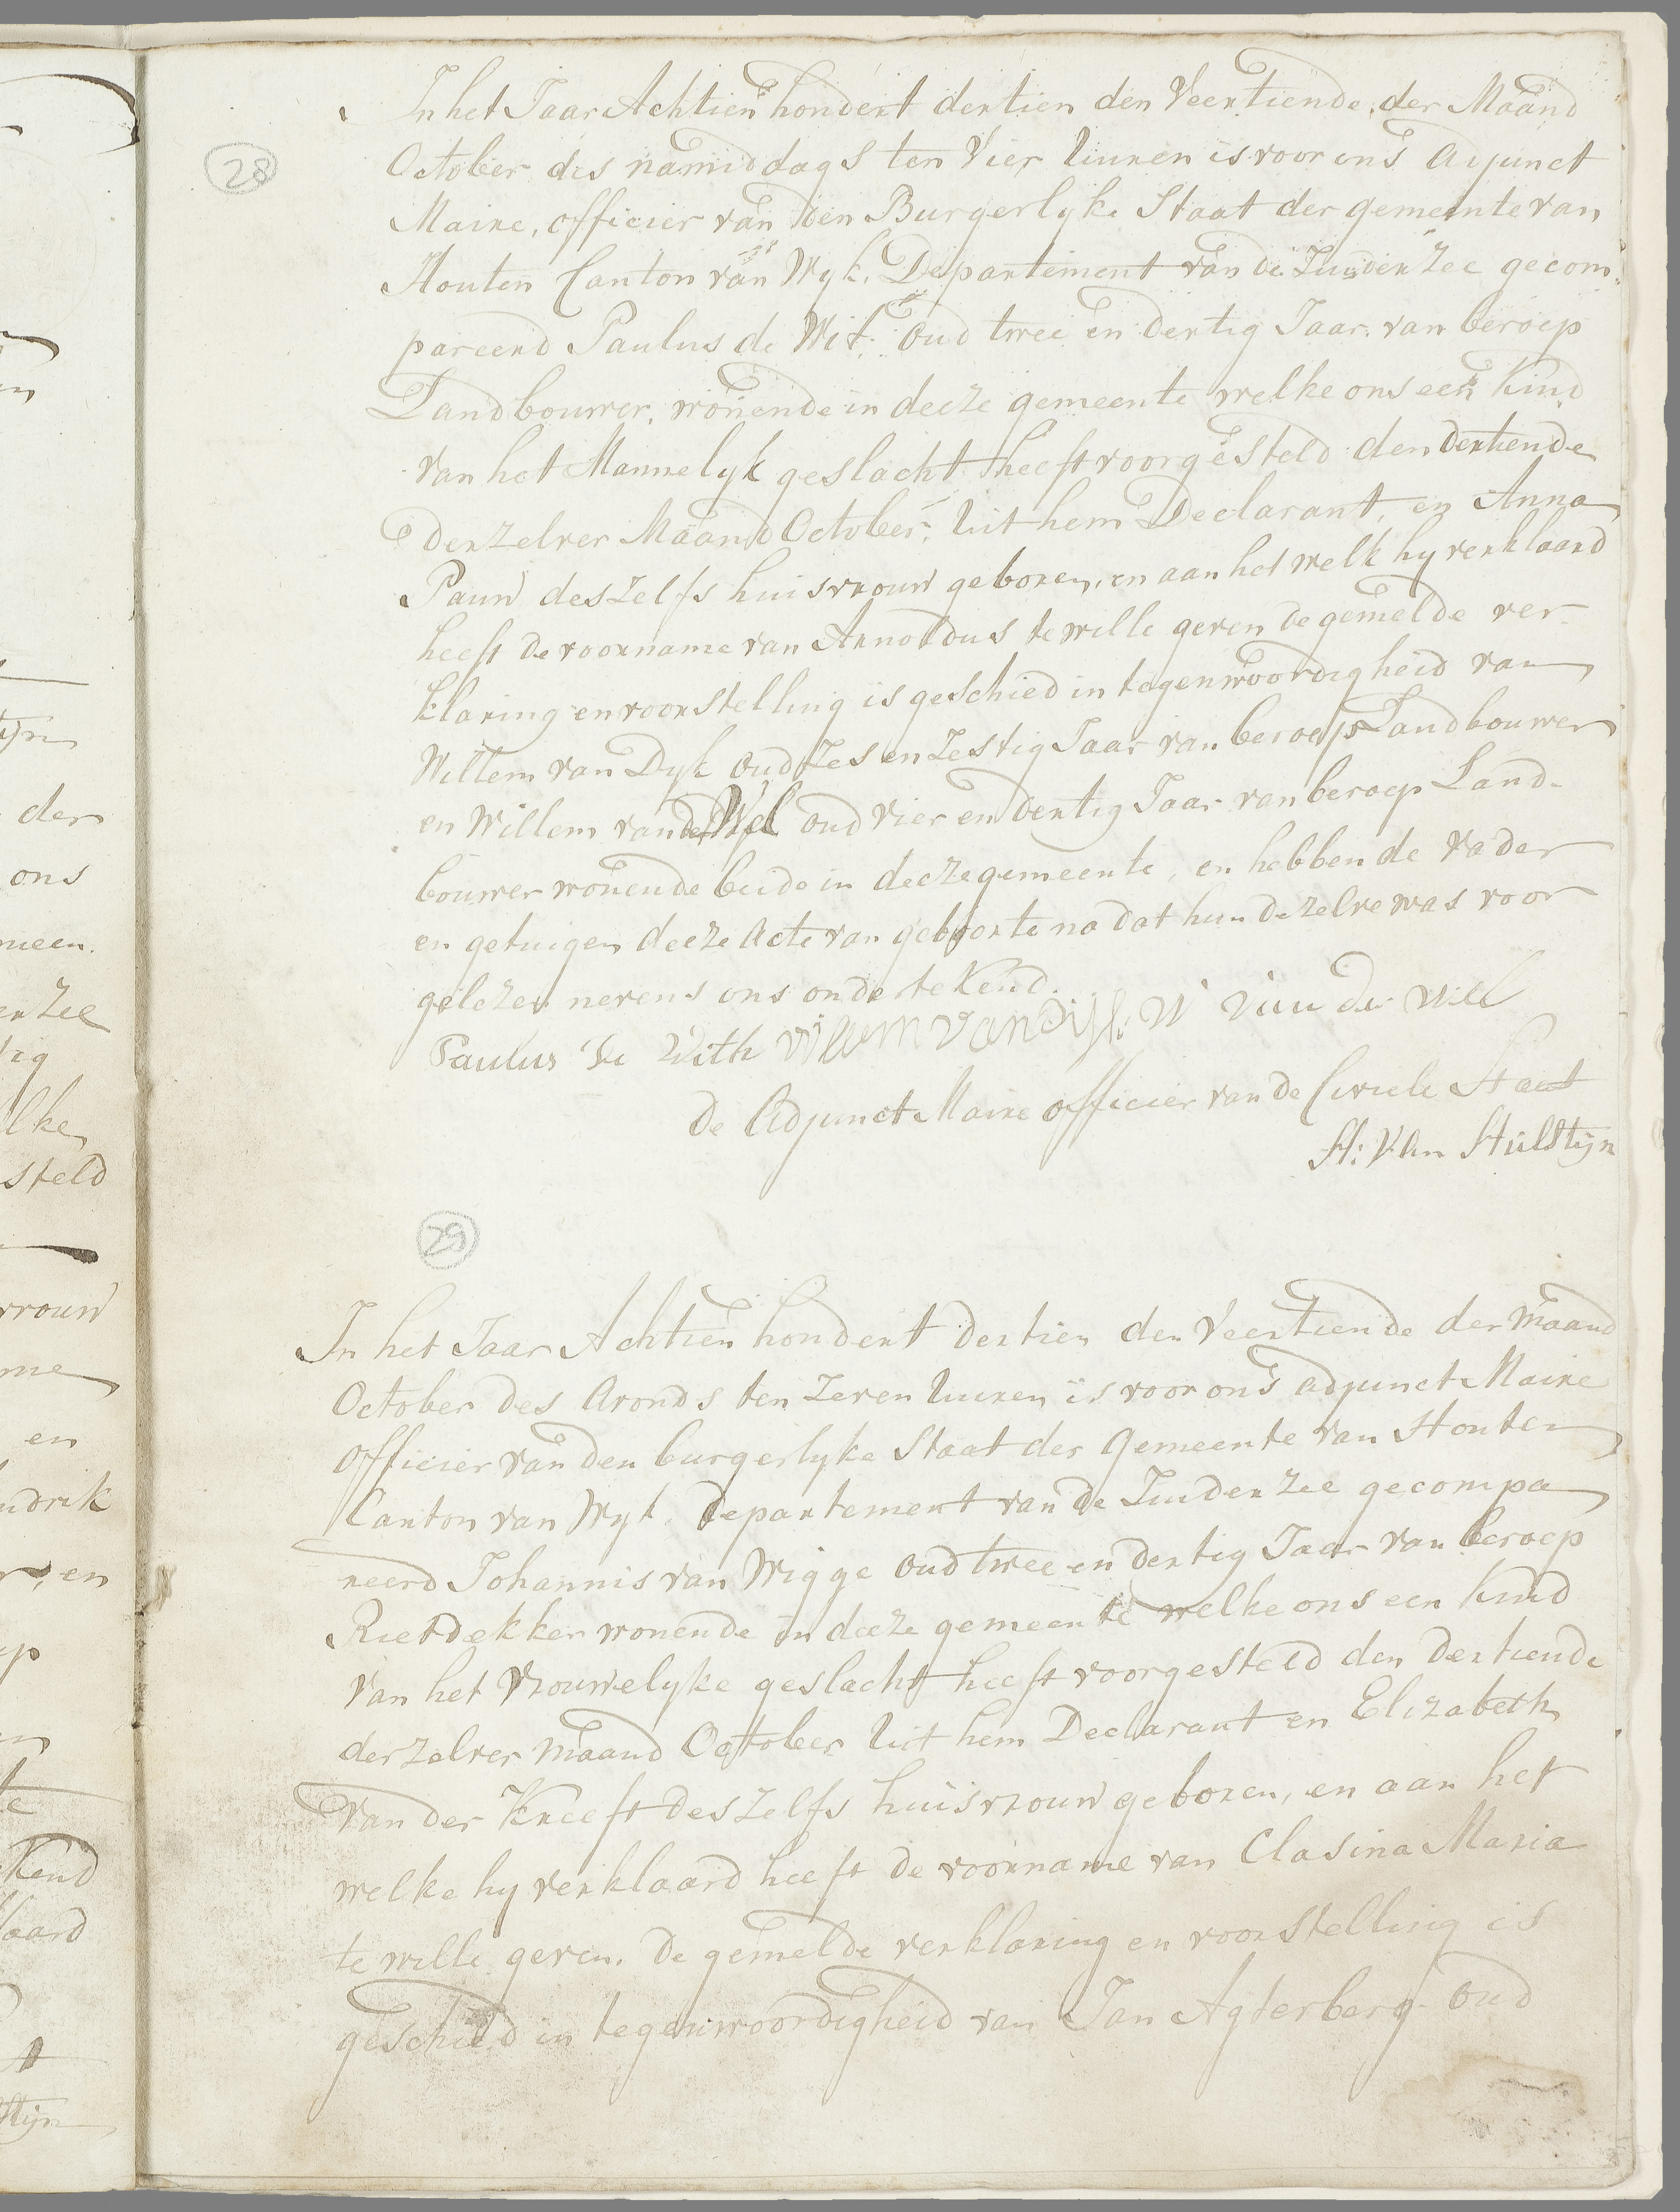 28
In het Jaar Achtien hondert dertien den Veertiende, der Maand
October des namiddags ten Vier Uuren is voor ons Adjunct
Maire, officier van den Burgerlyke Staat der gemeente van
Houten Canton van Wyk, Departement van de Zuyder Zee gecom
pareerd Paulus de Wit, oud twee en dertig Jaar, van beroep
Landbouwer, wonende in deeze gemeente welke ons een Kind
van het Mannelyk geslacht heeft voorgesteld den dertiende
derzelver Maand October, Uit hem Declarant, en Anna
Pauw deszelfs huisvrouw geboren, en aan het welk hy verklaard
heeft de voorname van Arnoldus te wille geven de gemelde ver-
klaring en voorstelling is geschied in tegenwoordigheid van
Willem van Dyk oud Zes en Zestig Jaar van beroep Landbouwer
en Willem van der Wel oud Vier en dertig Jaar van beroep Land-
bouwer wonende beide in deeze gemeente, en hebben de Vader
en getuigen deeze Acte van geboorte na dat hun dezelve was voor
gelezen nevens ons ondertekend.
Paulus de With willem van dijk W van der wel
De Adjunct Maire officier van de Civiele Staat
H: Van Hulstijn
29
In het Jaar Achtien hondert dertien den Veertiende der Maand
October des Avonds ten Zeven Uuren is voor ons adjunct Maire
officier van den burgerlyke Staat der Gemeente van Houten
Canton van Wyk, Departement van de Zuider Zee gecompa
reerd Johannis van Wigge oud twee en dertig Jaar van beroep
Rietdekker wonende in deeze gemeente welke ons een Kind
van het Vrouwelyke geslacht heeft voorgesteld den dertiende
derzelver maand October Uit hem Declarant en Elizabeth
van der Kneeft deszelfs huisvrouw geboren, en aan het
welke hy verklaard heeft de voorname van Clasina Maria
te wille geven. De gemelde verklaring en voorstelling is
geschied in tegenwoordigheid van Jan Agterberg oud